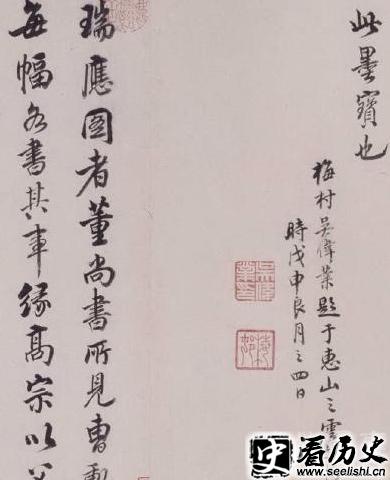 此墨寶也
梅村吳偉業題于惠山之雲
時戊申良月之四日
吳偉業印
瑞應圖者董尚書所見曹
每幅各書其事緣高宗以
史 看历史
www.seelishi.com